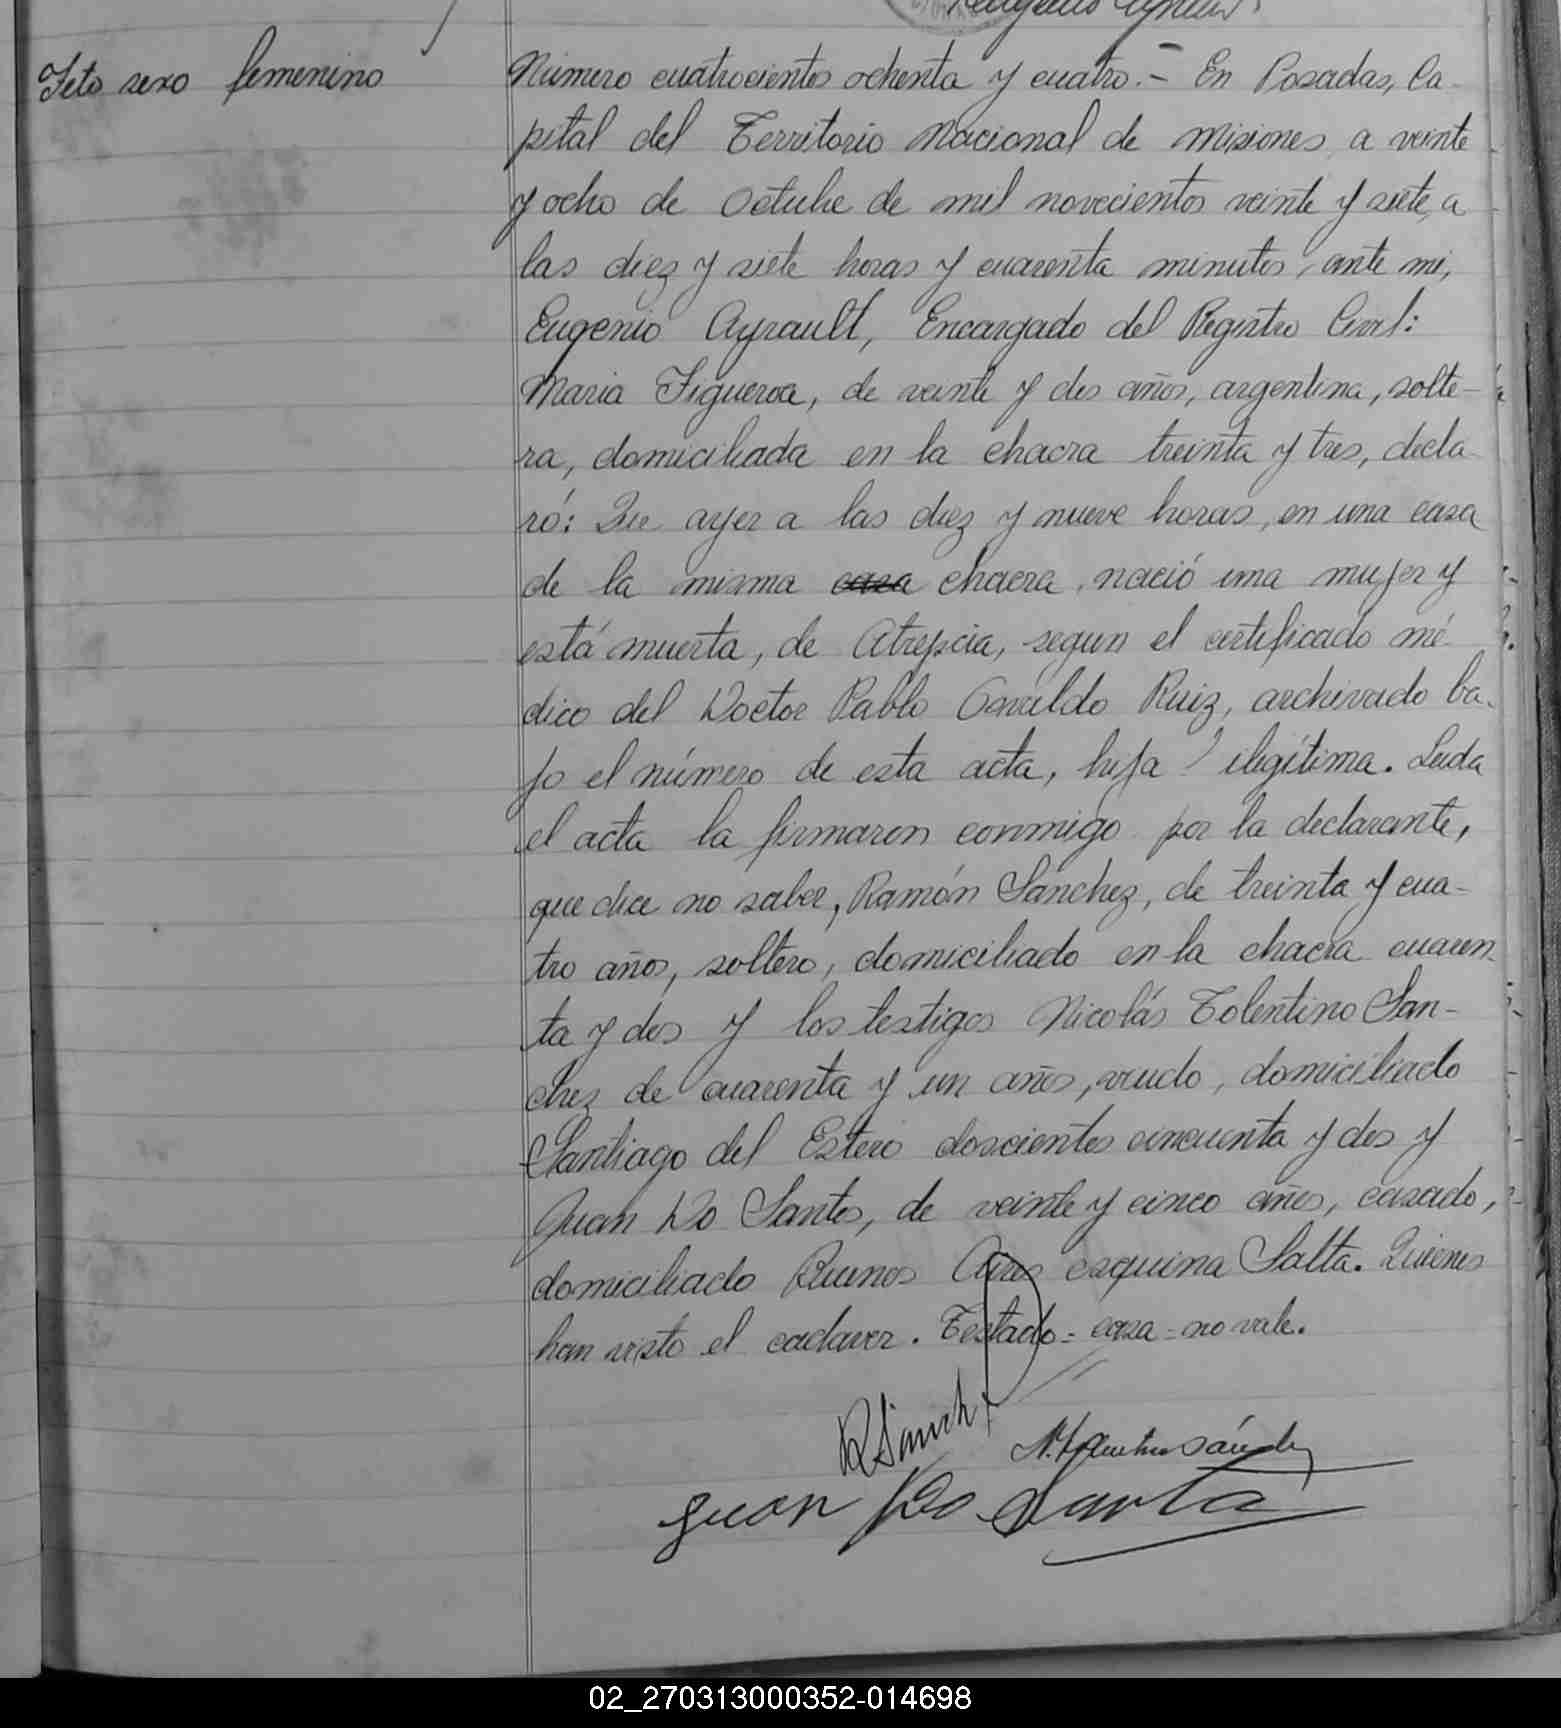 Feto sexo femenino
Número cuatrocientos ochenta y cuatro.- En Posadas, Ca-
pital del Territorio Nacional de Misiones, a veinte
y ocho de Octubre de mil novecientos veinte y siete, a
las diez y siete horas y cuarenta minutos, ante mi,
Eugenio Ayrault, Encargado del Registro Civil:
Maria Figueroa, de veinte y dos años, argentina, solte-
ra, domiciliada en la chacra treinta y tres, decla-
ró: Que ayer a las diez y nueve horas, en una casa
de la misma casa chacra, nació una mujer y
está muerta, de Atrepcia, segun el certificado mé-
dico del Doctor Pablo Osvaldo Ruiz, archivado ba-
jo el número de esta acta, hija ilegítima. Leida
el acta la firmaron conmigo por la declarante,
que dice no saber, Ramón Sanchez, de treinta y cua-
tro años, soltero, domiciliado en la chacra cuaren-
ta y dos y los testigos Nicolás Tolentino San-
chez de cuarenta y un años, viudo, domiciliado
Santiago del Estero doscientos cincuenta y dos y
Juan Do Santos, de veinte y cinco años, casado,
domiciliado Buenos Aires esquina Salta. Quienes
han visto el cadaver. Testado = casa = no vale.
R Sanch
N. Tolentino Sánchez
Juan Do Santo
02_270313000352-014698